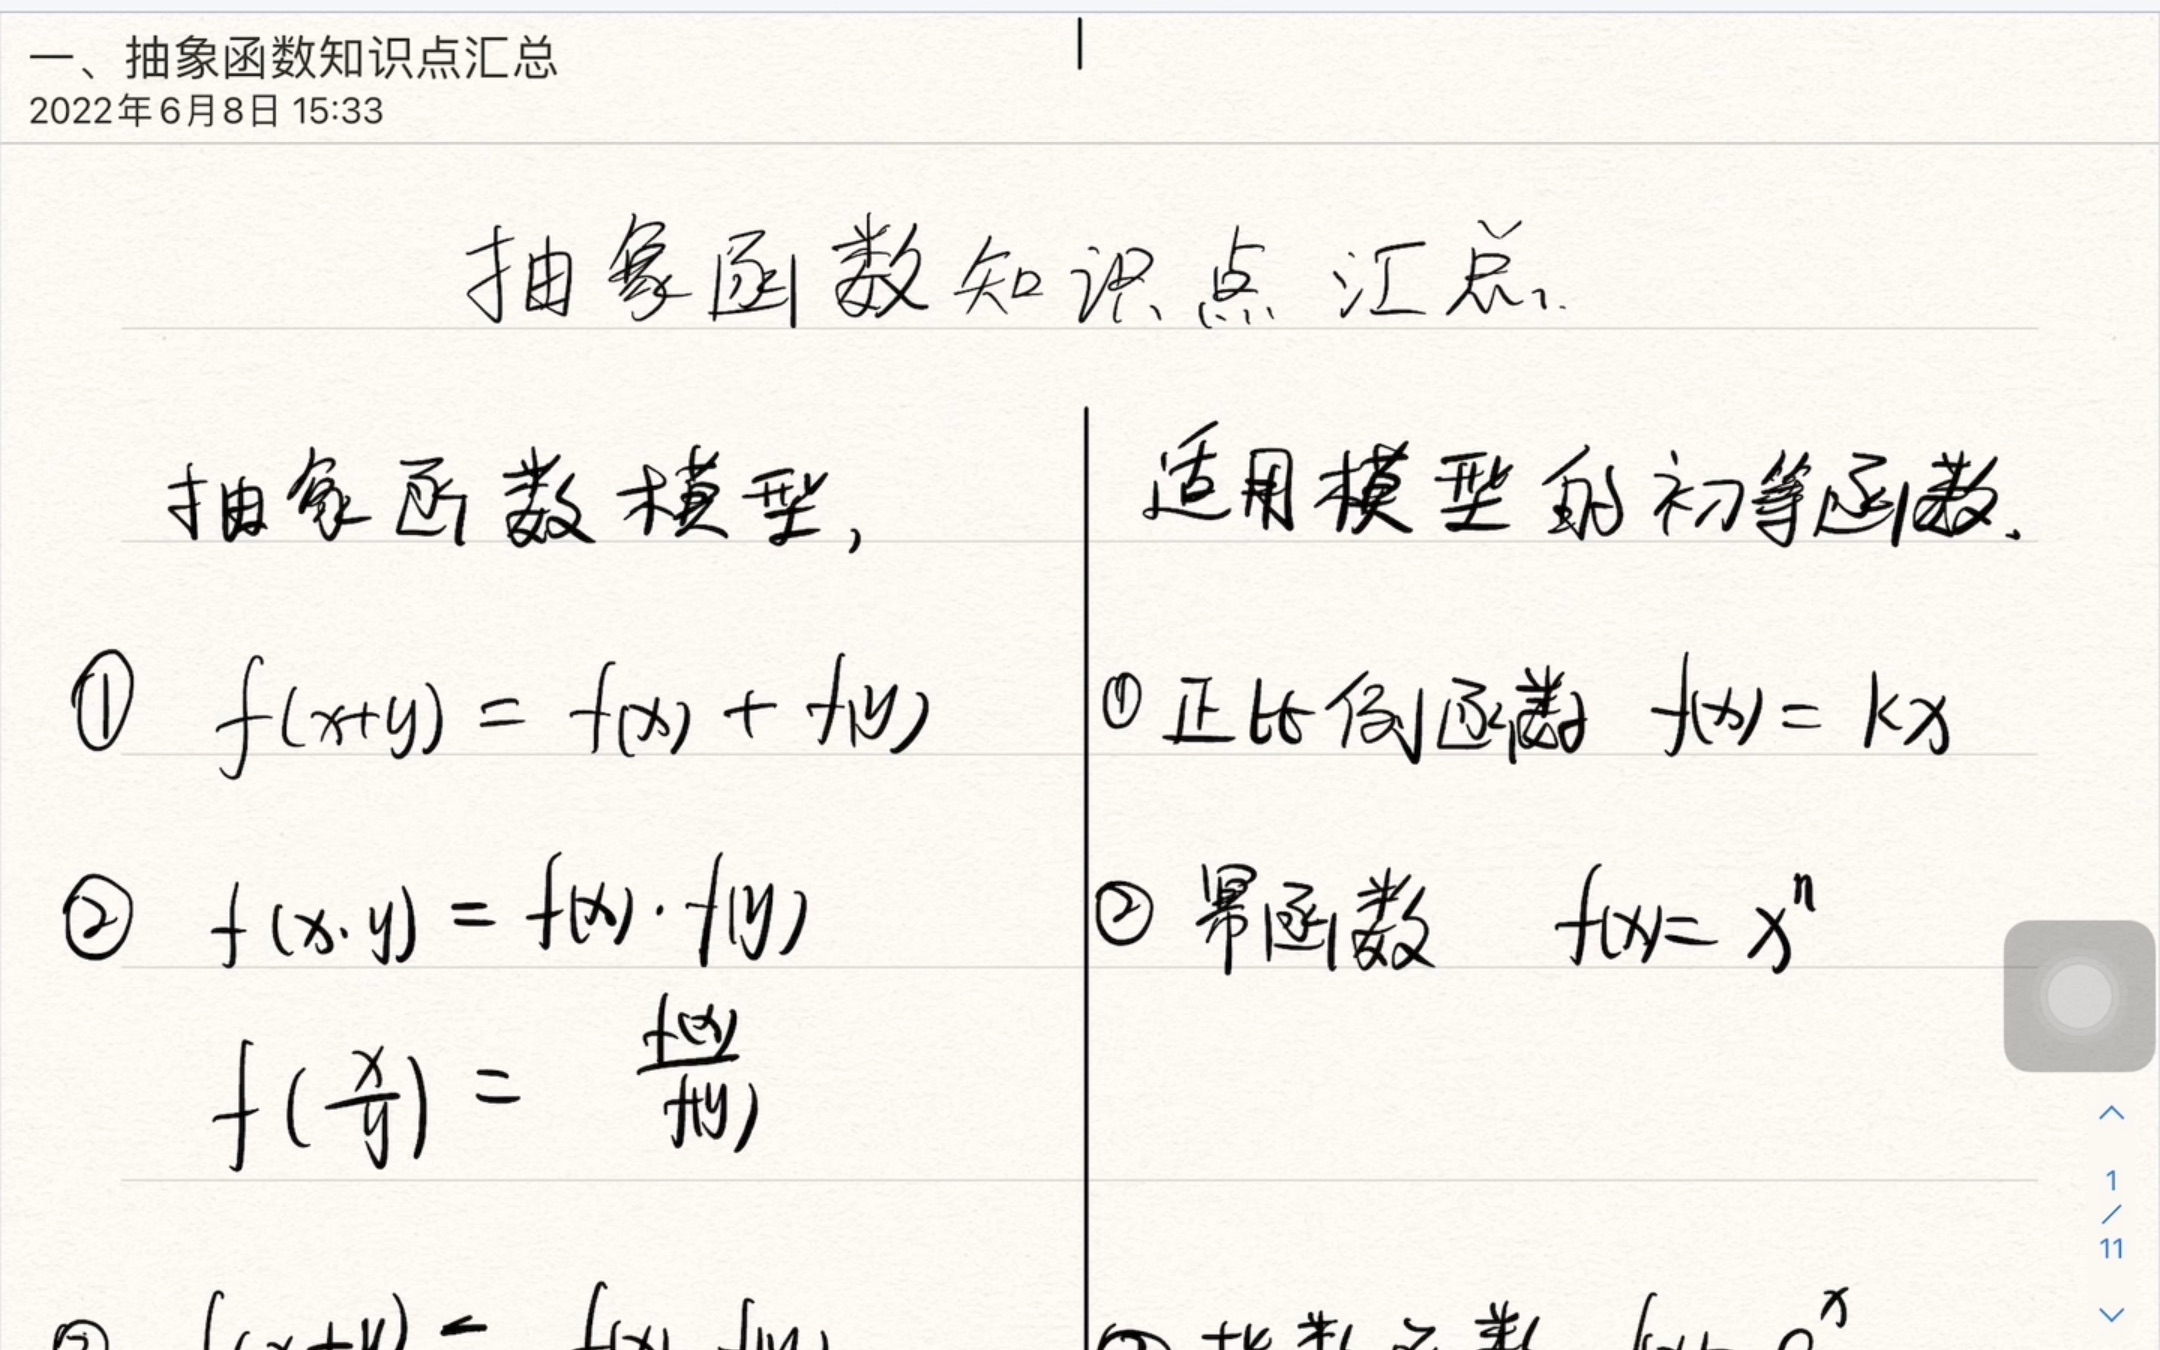 一、抽象函数知识点汇总
2022年6月8日 15:33
抽象函数知识点汇总.
抽象函数模型,
适用模型的初等函数.
① f(x+y) = f(x) + f(y)
① 正比例函数 f(x) = kx
② f(x·y) = f(x)·f(y)
② 幂函数 f(x) = xⁿ
f(x/y) = f(x)/f(y)
f(x+y) = f(x) f(y)
指数函数 f(x)= aˣ
1
/
11